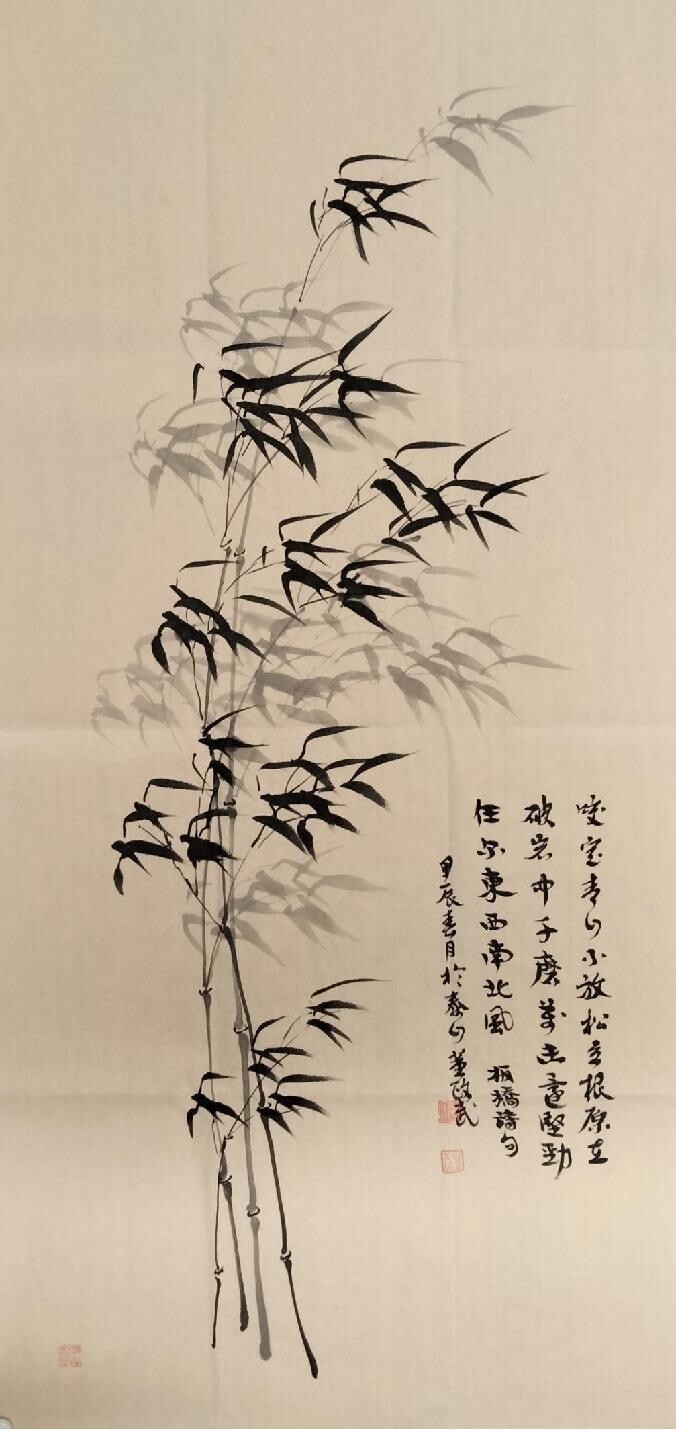 咬定青山不放松立根原在
破岩中千磨萬击還堅勁
任尔東西南北風 板橋詩句
甲辰春月於泰山董政武